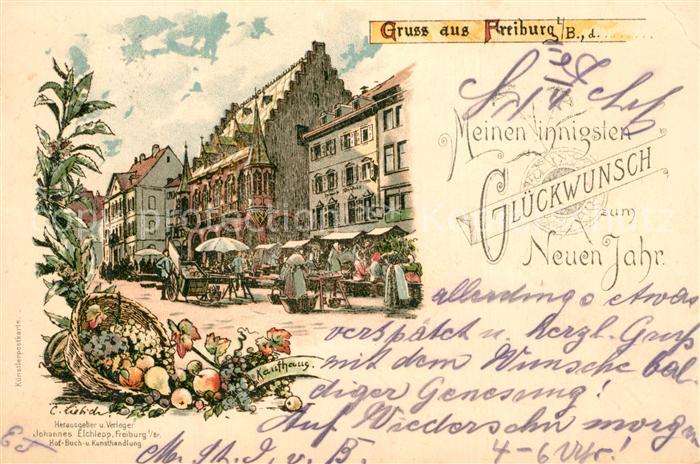 Gruss aus Freiburg i/B., d.
Meinen innigsten
GLÜCKWUNSCH
zum
Neuen Jahr.
allerdings etwas
verspätet u. herzl. Gruss
mit dem Wunsche bal
diger Genesung!
Auf Wiedersehn morgen
4-6 Uhr!
Kaufhaus.
Künstlerpostkarte.
Herausgeber u. Verleger
Johannes Elchlepp, Freiburg i/Br.
Hof-Buch- u. Kunsthandlung